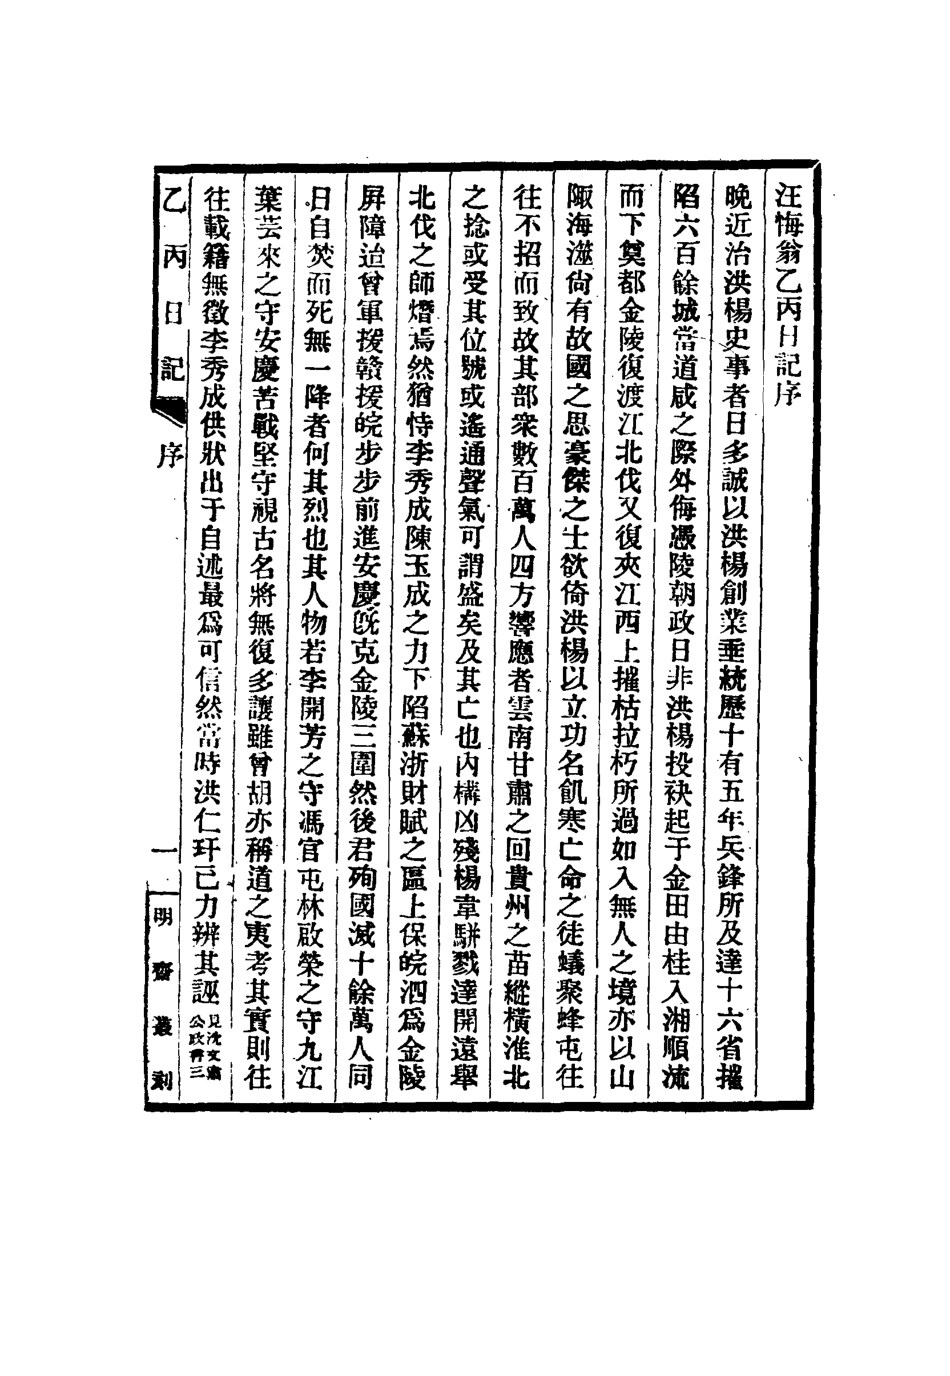 汪悔翁乙丙日記序
晚近治洪楊史事者日多誠以洪楊創業垂統歷十有五年兵鋒所及達十六省摧
陷六百餘城當道咸之際外侮憑陵朝政日非洪楊投袂起于金田由桂入湘順流
而下奠都金陵復渡江北伐又復夾江西上摧枯拉朽所過如入無人之境亦以山
陬海澨尙有故國之思豪傑之士欲倚洪楊以立功名飢寒亡命之徒蟻聚蜂屯往
往不招而致故其部衆數百萬人四方響應者雲南甘肅之回貴州之苗縱橫淮北
之捻或受其位號或遙通聲氣可謂盛矣及其亡也內構凶殘楊韋駢戮達開遠舉
北伐之師熸焉然猶恃李秀成陳玉成之力下陷蘇浙財賦之區上保皖泗爲金陵
屏障迨曾軍援贛援皖步步前進安慶旣克金陵三圍然後君殉國滅十餘萬人同
日自焚而死無一降者何其烈也其人物若李開芳之守馮官屯林啟榮之守九江
葉芸來之守安慶苦戰堅守視古名將無復多讓雖曾胡亦稱道之夷考其實則往
往載籍無徵李秀成供狀出于自述最爲可信然當時洪仁玕已力辨其誣
見沈文肅
公政書三
乙丙日記 序
一
明齋叢刻